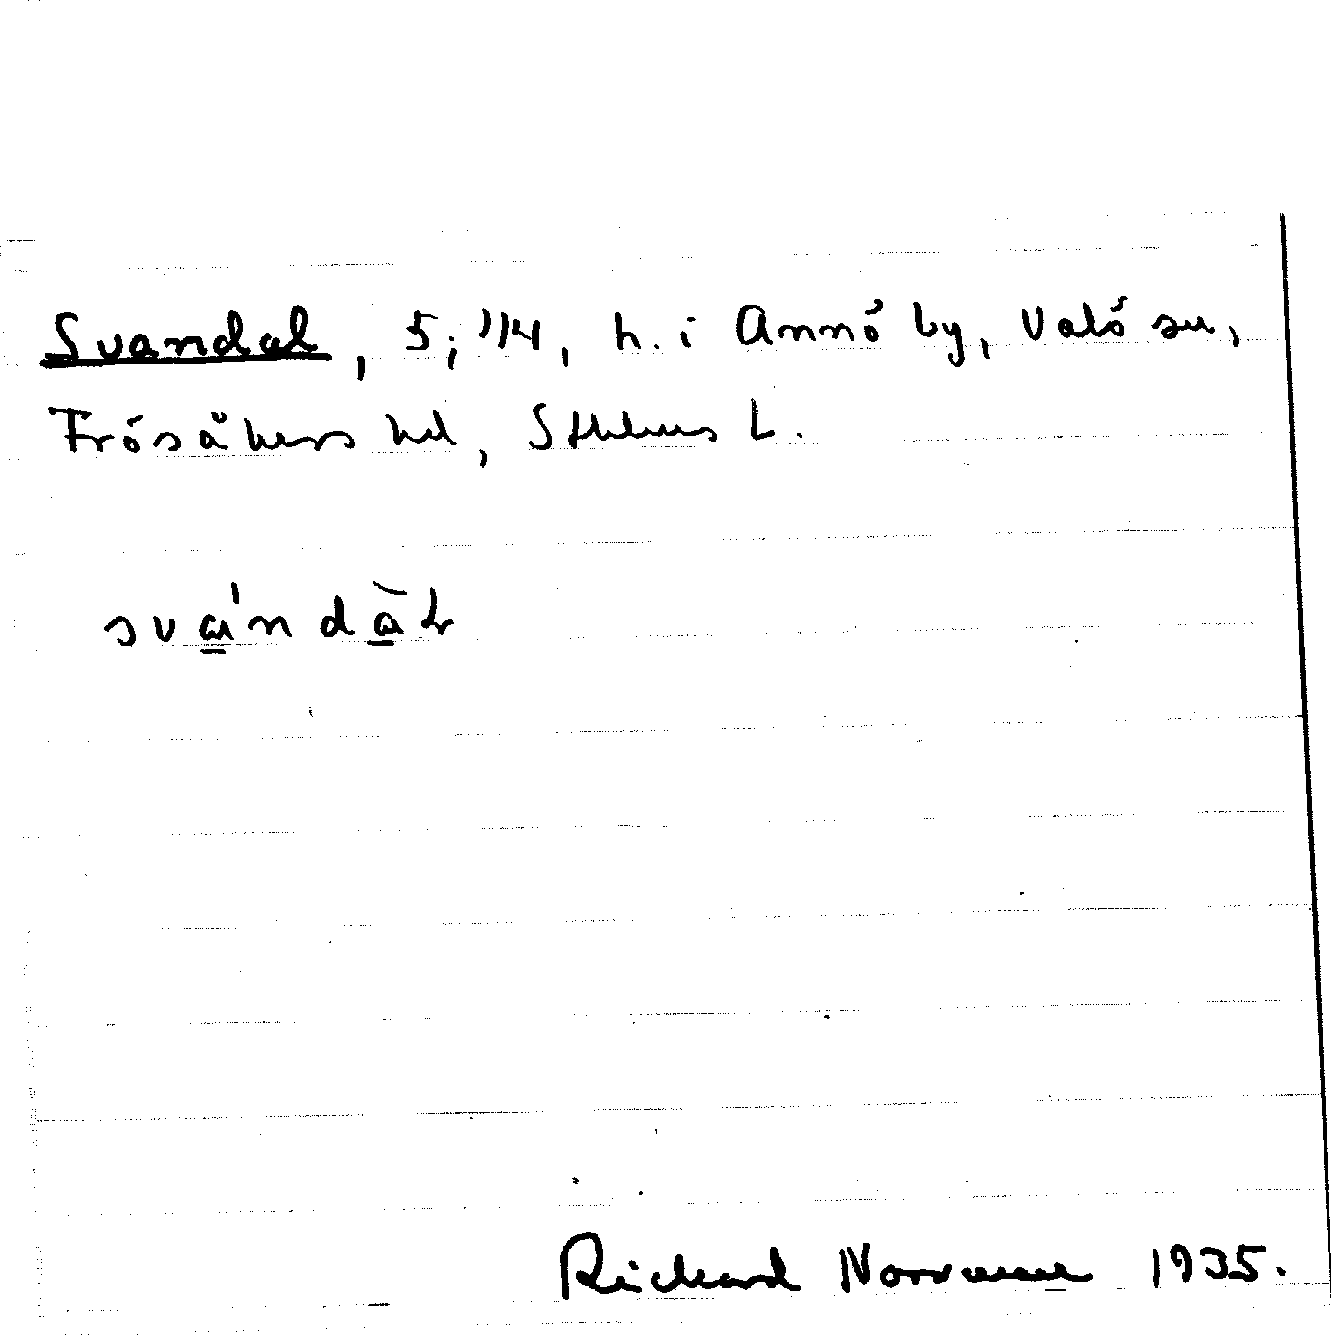 Svandal, 5; 1/4, h. i Annö by, Valö sn,
Frösåkers hd, Sthlms L.
sván dàL
Richard Norrman 1935.